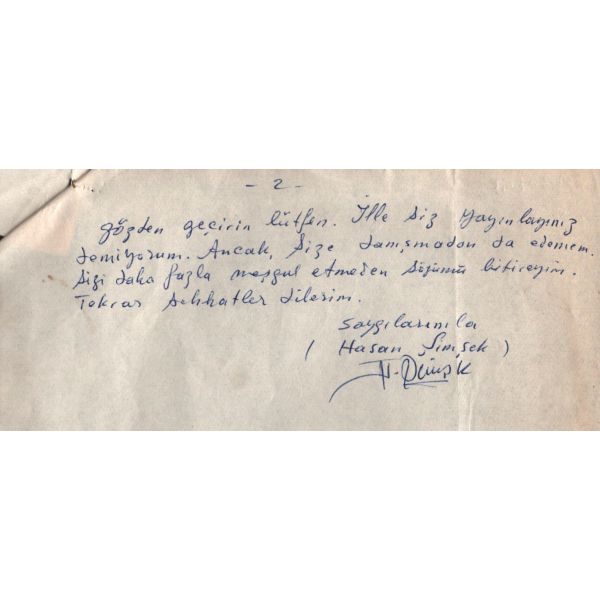 - 2 -
gözden geçirin lütfen. İlle siz yayınlayınız
demiyorum. Ancak, size danışmadan da edemem.
Sizi daha fazla meşgul etmeden sözümü bitireyim.
Tekrar sıhhatler dilerim.
Saygılarımla
( Hasan Şimşek )